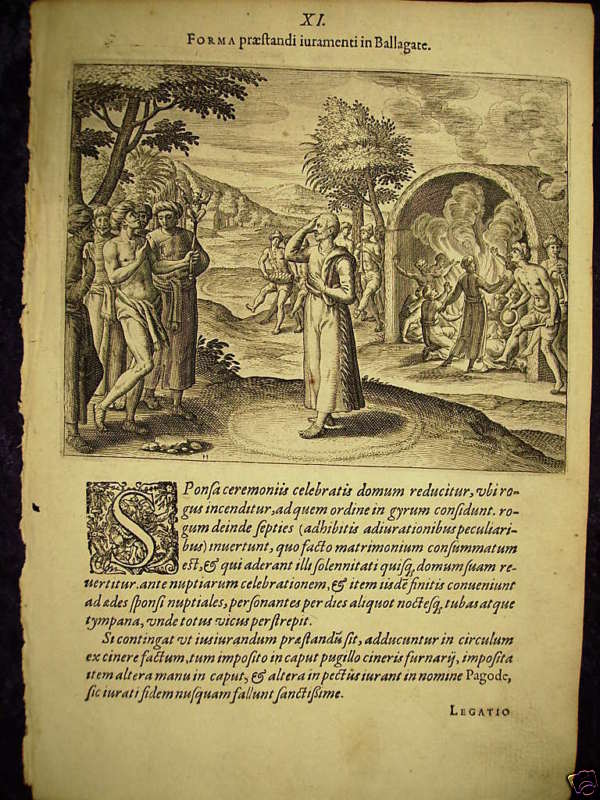 XI.
FORMA præſtandi iuramenti in Ballagate.
11
SPonſa ceremoniis celebratis domum reducitur, vbi ro-
gus incenditur, ad quem ordine in gyrum conſidunt. ro-
gum deinde ſepties (adhibitis adiurationibus peculiari-
bus) invertunt, quo facto matrimonium conſummatum
eſt, & qui aderant illi ſolennitati quiſq, domum ſuam re-
vertitur. ante nuptiarum celebrationem, & item iisdē finitis conveniunt
ad ædes ſponſi nuptiales, perſonantes per dies aliquot nocteſq, tubas atque
tympana, vnde totus vicus perſtrepit.
Si contingat vt iusiurandum præſtandū ſit, adducuntur in circulum
ex cinere factum, tum impoſito in caput pugillo cineris furnarij, impoſita
item altera manu in caput, & altera in pectus iurant in nomine Pagode,
ſic iurati fidem nuſquam fallunt ſanctiſsime.
LEGATIO